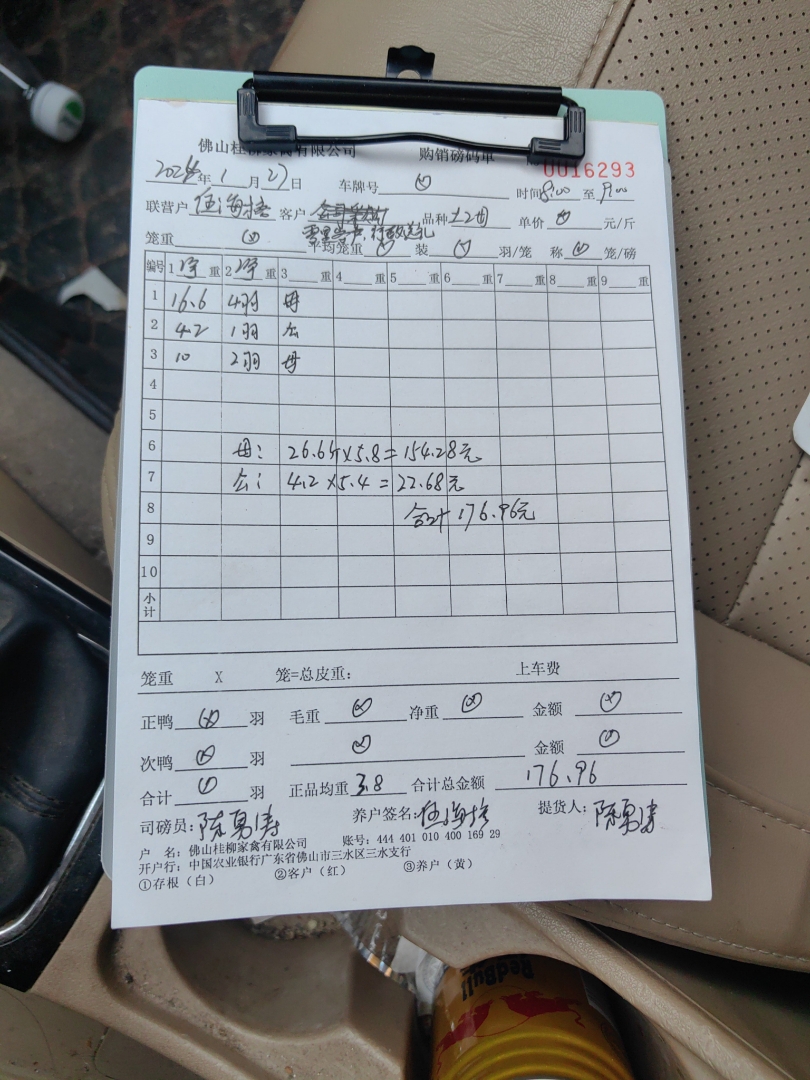 佛山桂柳家禽有限公司 购销磅码单 0016293
2024年 1 月 27 日 车牌号 时间 8:00 至 9:00
联营户 伍海 客户 品种 土2 单价 元/斤
笼重 平均笼重 装 羽/笼 称 笼/磅
编号 1 净 重 2 重 3 重 4 重 5 重 6 重 7 重 8 重 9 重
1 16.6 4羽 母
2 4.2 1羽 公
3 10 2羽 母
4
5
6 母: 26.6斤×5.8=154.28元
7 公: 4.2×5.4=22.68元
8 合计 176.96元
9
10
小计
笼重 X 笼=总皮重: 上车费
正鸭 羽 毛重 净重 金额
次鸭 羽 金额
合计 羽 正品均重 3.8 合计总金额 176.96
司磅员: 陈勇涛 养户签名: 伍海 提货人: 陈勇涛
户 名: 佛山桂柳家禽有限公司 账号: 444 401 010 400 169 29
开户行: 中国农业银行广东省佛山市三水区三水支行
①存根(白) ②客户(红) ③养户(黄)
RedBull